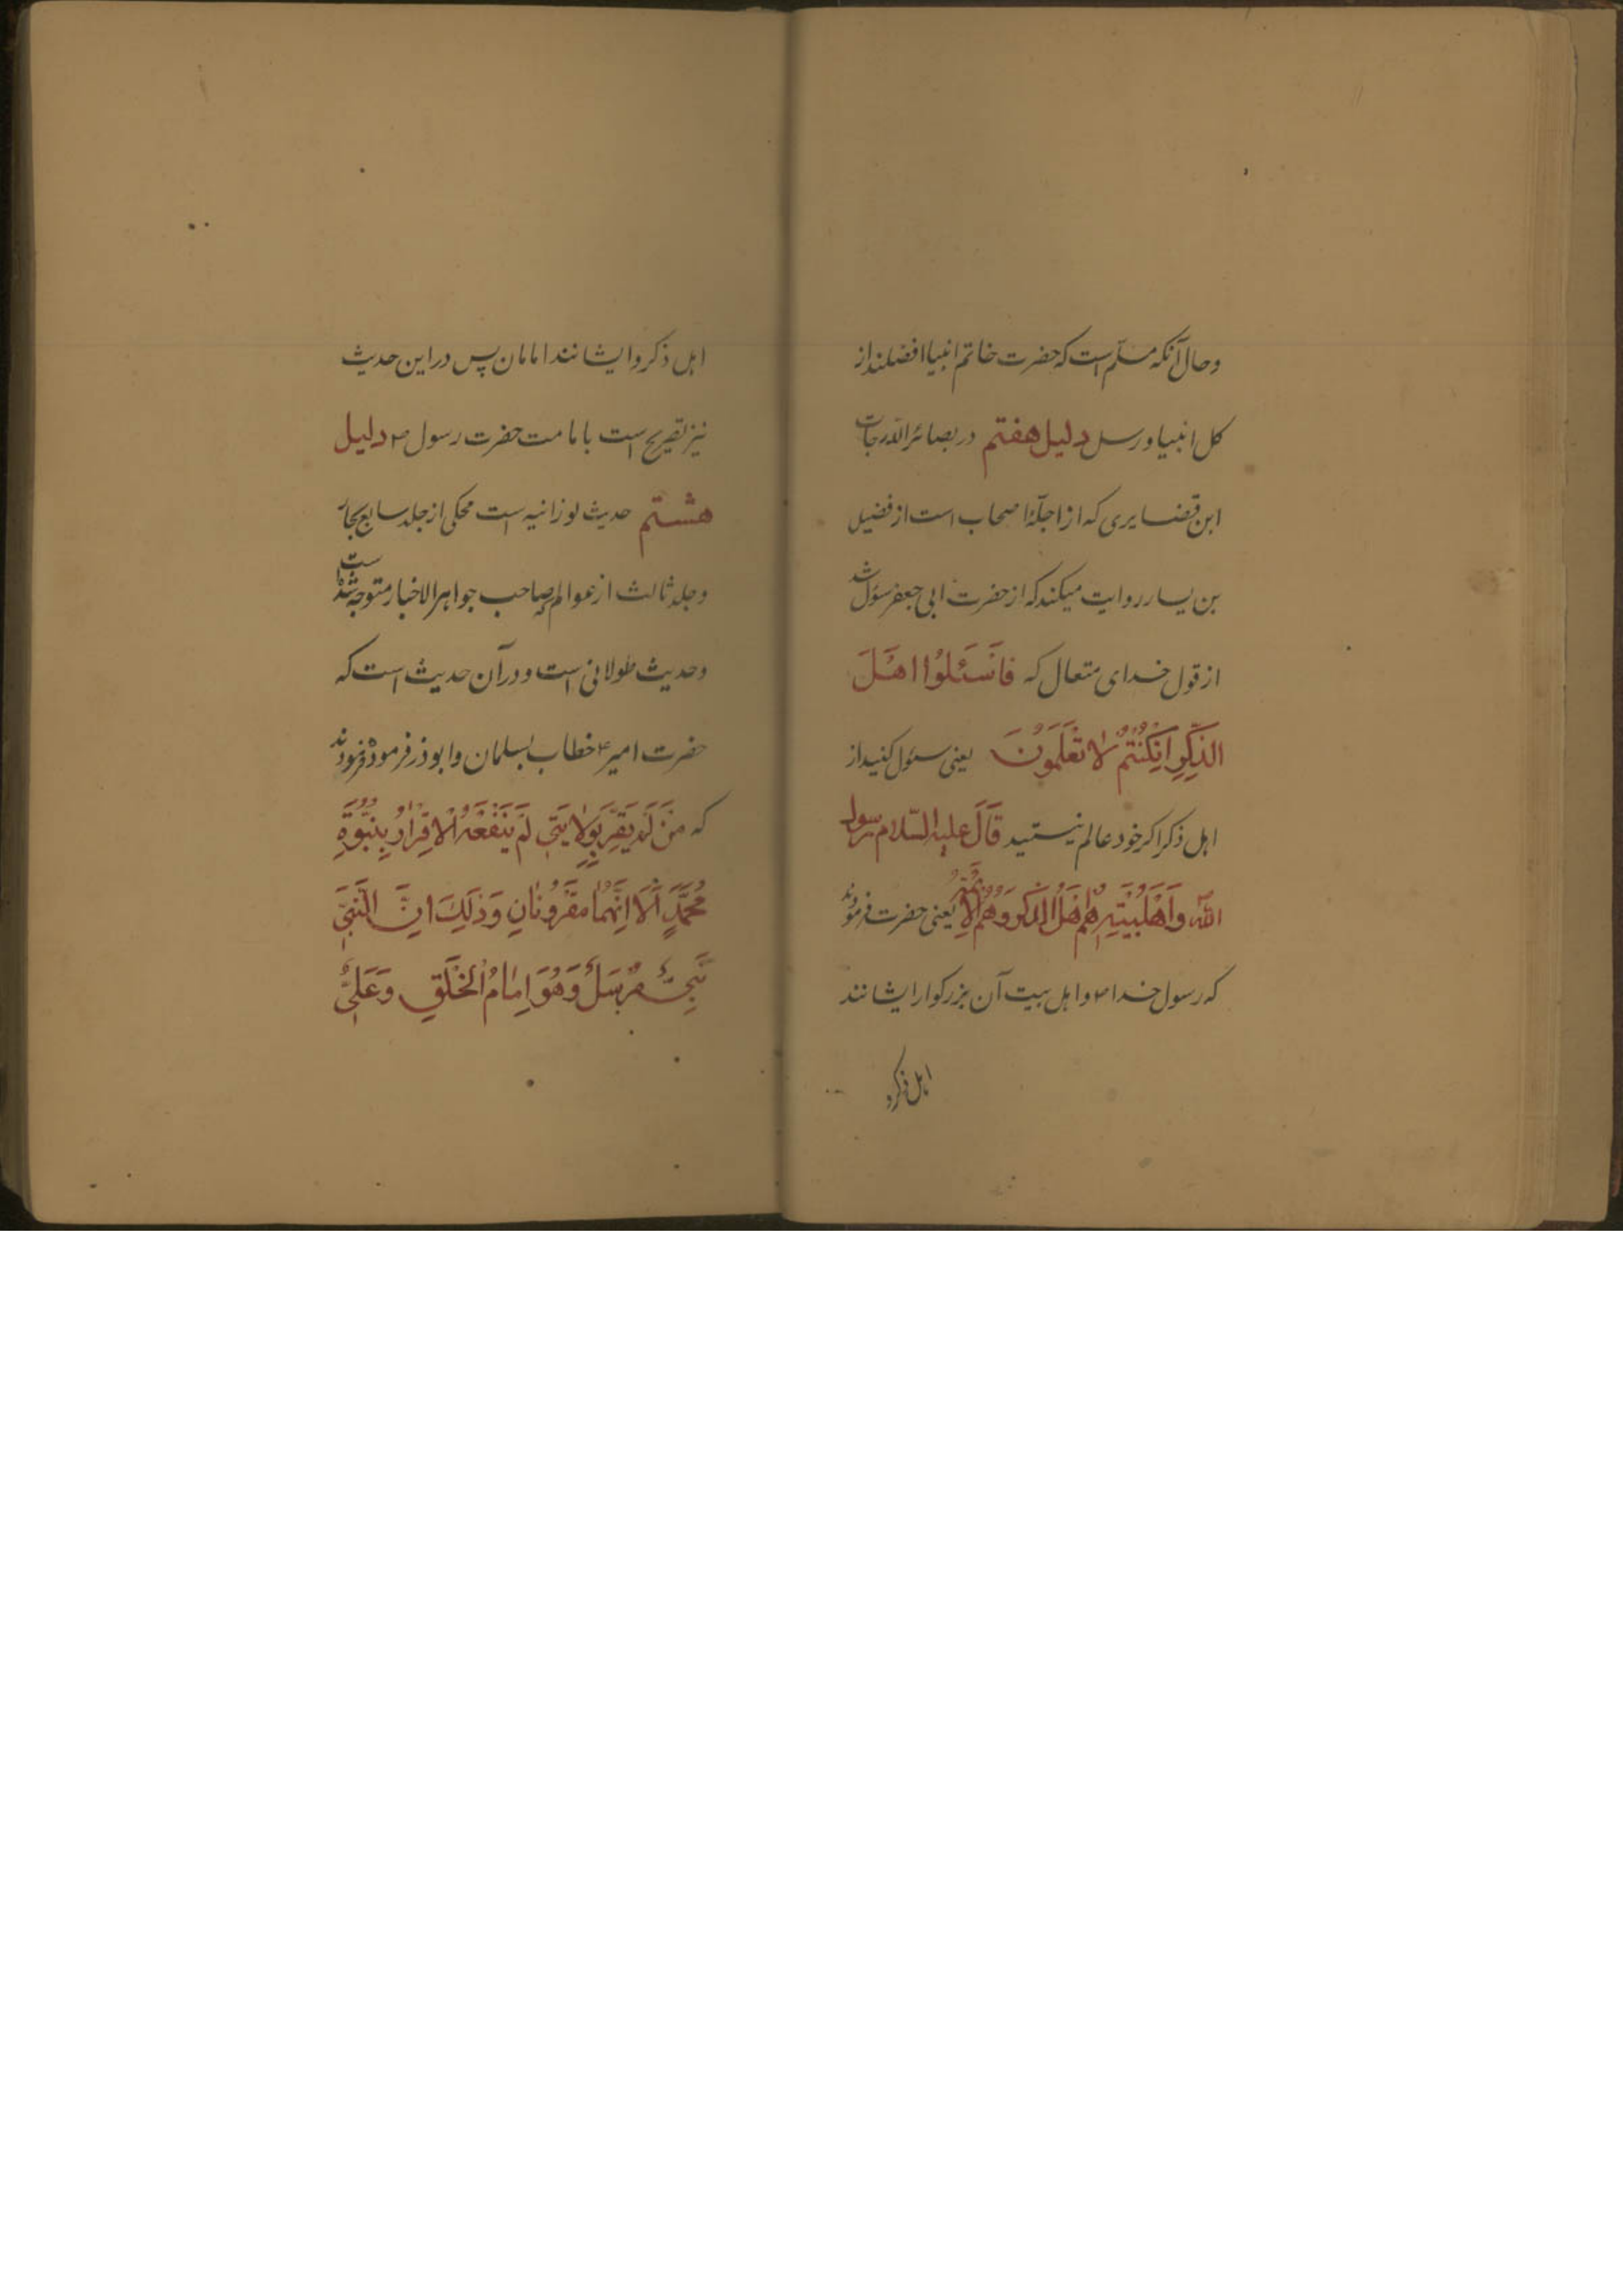 وحال آنکه مسلّم است که حضرت خاتم انبیا افضلند از
کل انبیا و رسل دلیل هفتم در بصائر الدّرجات
ابن قضایری که از اجلّهٔ اصحاب است از فضیل
بن یسار روایت میکند که از حضرت ابی جعفر سؤل شد
از قول خدای متعال که فَاسْئَلُوا اَهْلَ
الذِّکْرِ اِنْکُنْتُمْ لٰا تَعْلَمُونَ یعنی سئول کنید از
اهل ذکر اکر خود عالم نیستید قٰالَ علیه السّلام رسول
اللّه وَاَهْلُبَیْتِهِ هُمْ اَهْلُ الذِّکْرِ وَهُمُ الْاَئِمَّةُ یعنی حضرت فرمودند
که رسول خدا ص و اهل بیت آن بزرکوار ایشانند
اهل ذکر و
اهل ذکر و ایشانند امامان پس در این حدیث
نیز تصریح است بامامت حضرت رسول ص دلیل
هشتم حدیث نورانیه است محکی از جلد سابع بحار
و جلد ثالث از عوالم که صاحب جواهر الاخبار متوجه شده است
و حدیث طولانی است و در آن حدیث است که
حضرت امیر ع خطاب بسلمان و ابوذر فرموده فرمودند
که مَنْ لَمْ یُقِرَّ بِوِلٰایَتِی لَمْ یَنْفَعْهُ الْاِقْرٰارُ بِنُبُوَّةِ
مُحَمَّدٍ اَلَا اِنَّهُمٰا مَقْرُونٰانِ وَذٰلِکَ اَنَّ النَّبِیَّ
نَبِیٌّ مُرْسَلٌ وَهُوَ اِمٰامُ الْخَلْقِ وَعَلِیٌّ